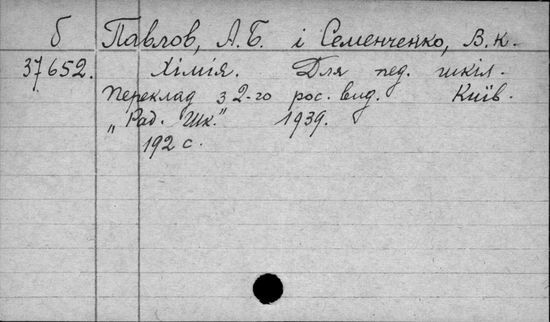 б Павлов, А.Б. і Семенченко, В.К.
37652. Хімія. Для пед. шкіл.
Переклад з 2-го рос. вид. Київ.
„Рад. Шк." 1939.
192 с.